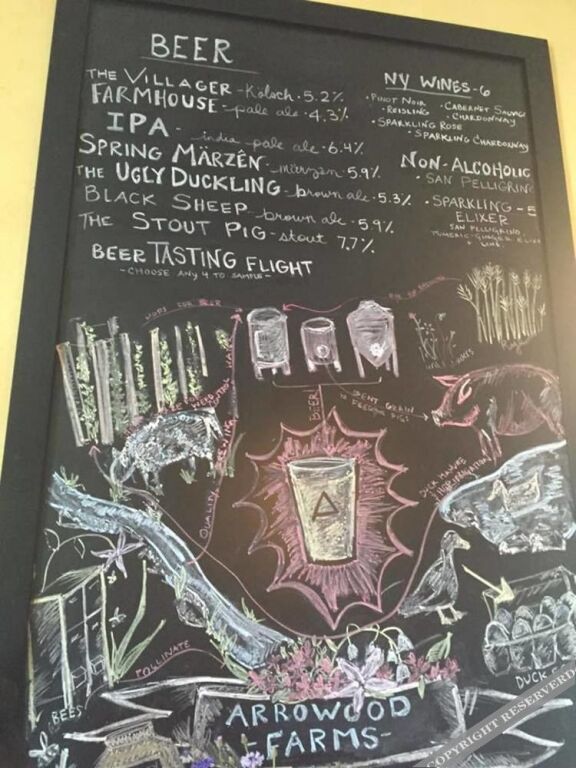 BEER
THE VILLAGER - Kölsch · 5.2%
FARMHOUSE - pale ale · 4.3%
IPA - india pale ale · 6.4%
SPRING MÄRZÊN - märzen · 5.9%
THE UGLY DUCKLING - brown ale · 5.3%
BLACK SHEEP - brown ale · 5.9%
THE STOUT PIG - stout 7.7%
BEER TASTING FLIGHT
- CHOOSE ANY 4 TO SAMPLE -
NY WINES - 6
· PINOT NOIR
· CABERNET SAUVAG
· REISLING
· CHARDONNAY
· SPARKLING ROSE
· SPARKLING CHARDONNAY
NON-ALCOHOLIC
· SAN PELLIGRIN
· SPARKLING - E
ELIXER
SAN PELLIGRINO
TUMERIC-GINGER ELIXE
LIME
HOPS FOR BEER
SPENT GRAIN
FEEDS PIGS
BEER
QUALITY BREWING WATER
DUCK MANURE
POLLINATE
BEES
DUCK
ARROWOOD
- FARMS -
COPYRIGHT RESERVERD